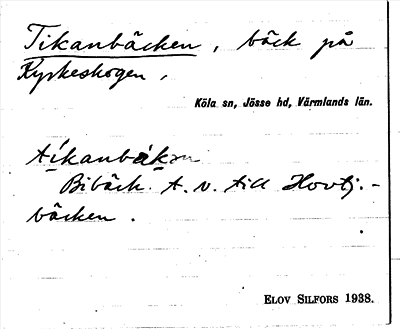 Tikanbäcken, bäck på
Kyrkeskogen,
Köla sn, Jösse hd, Värmlands län.
tíkanbäkən
Bibäck t. v. till Hovtj.-
bäcken.
ELOV SILFORS 1938.